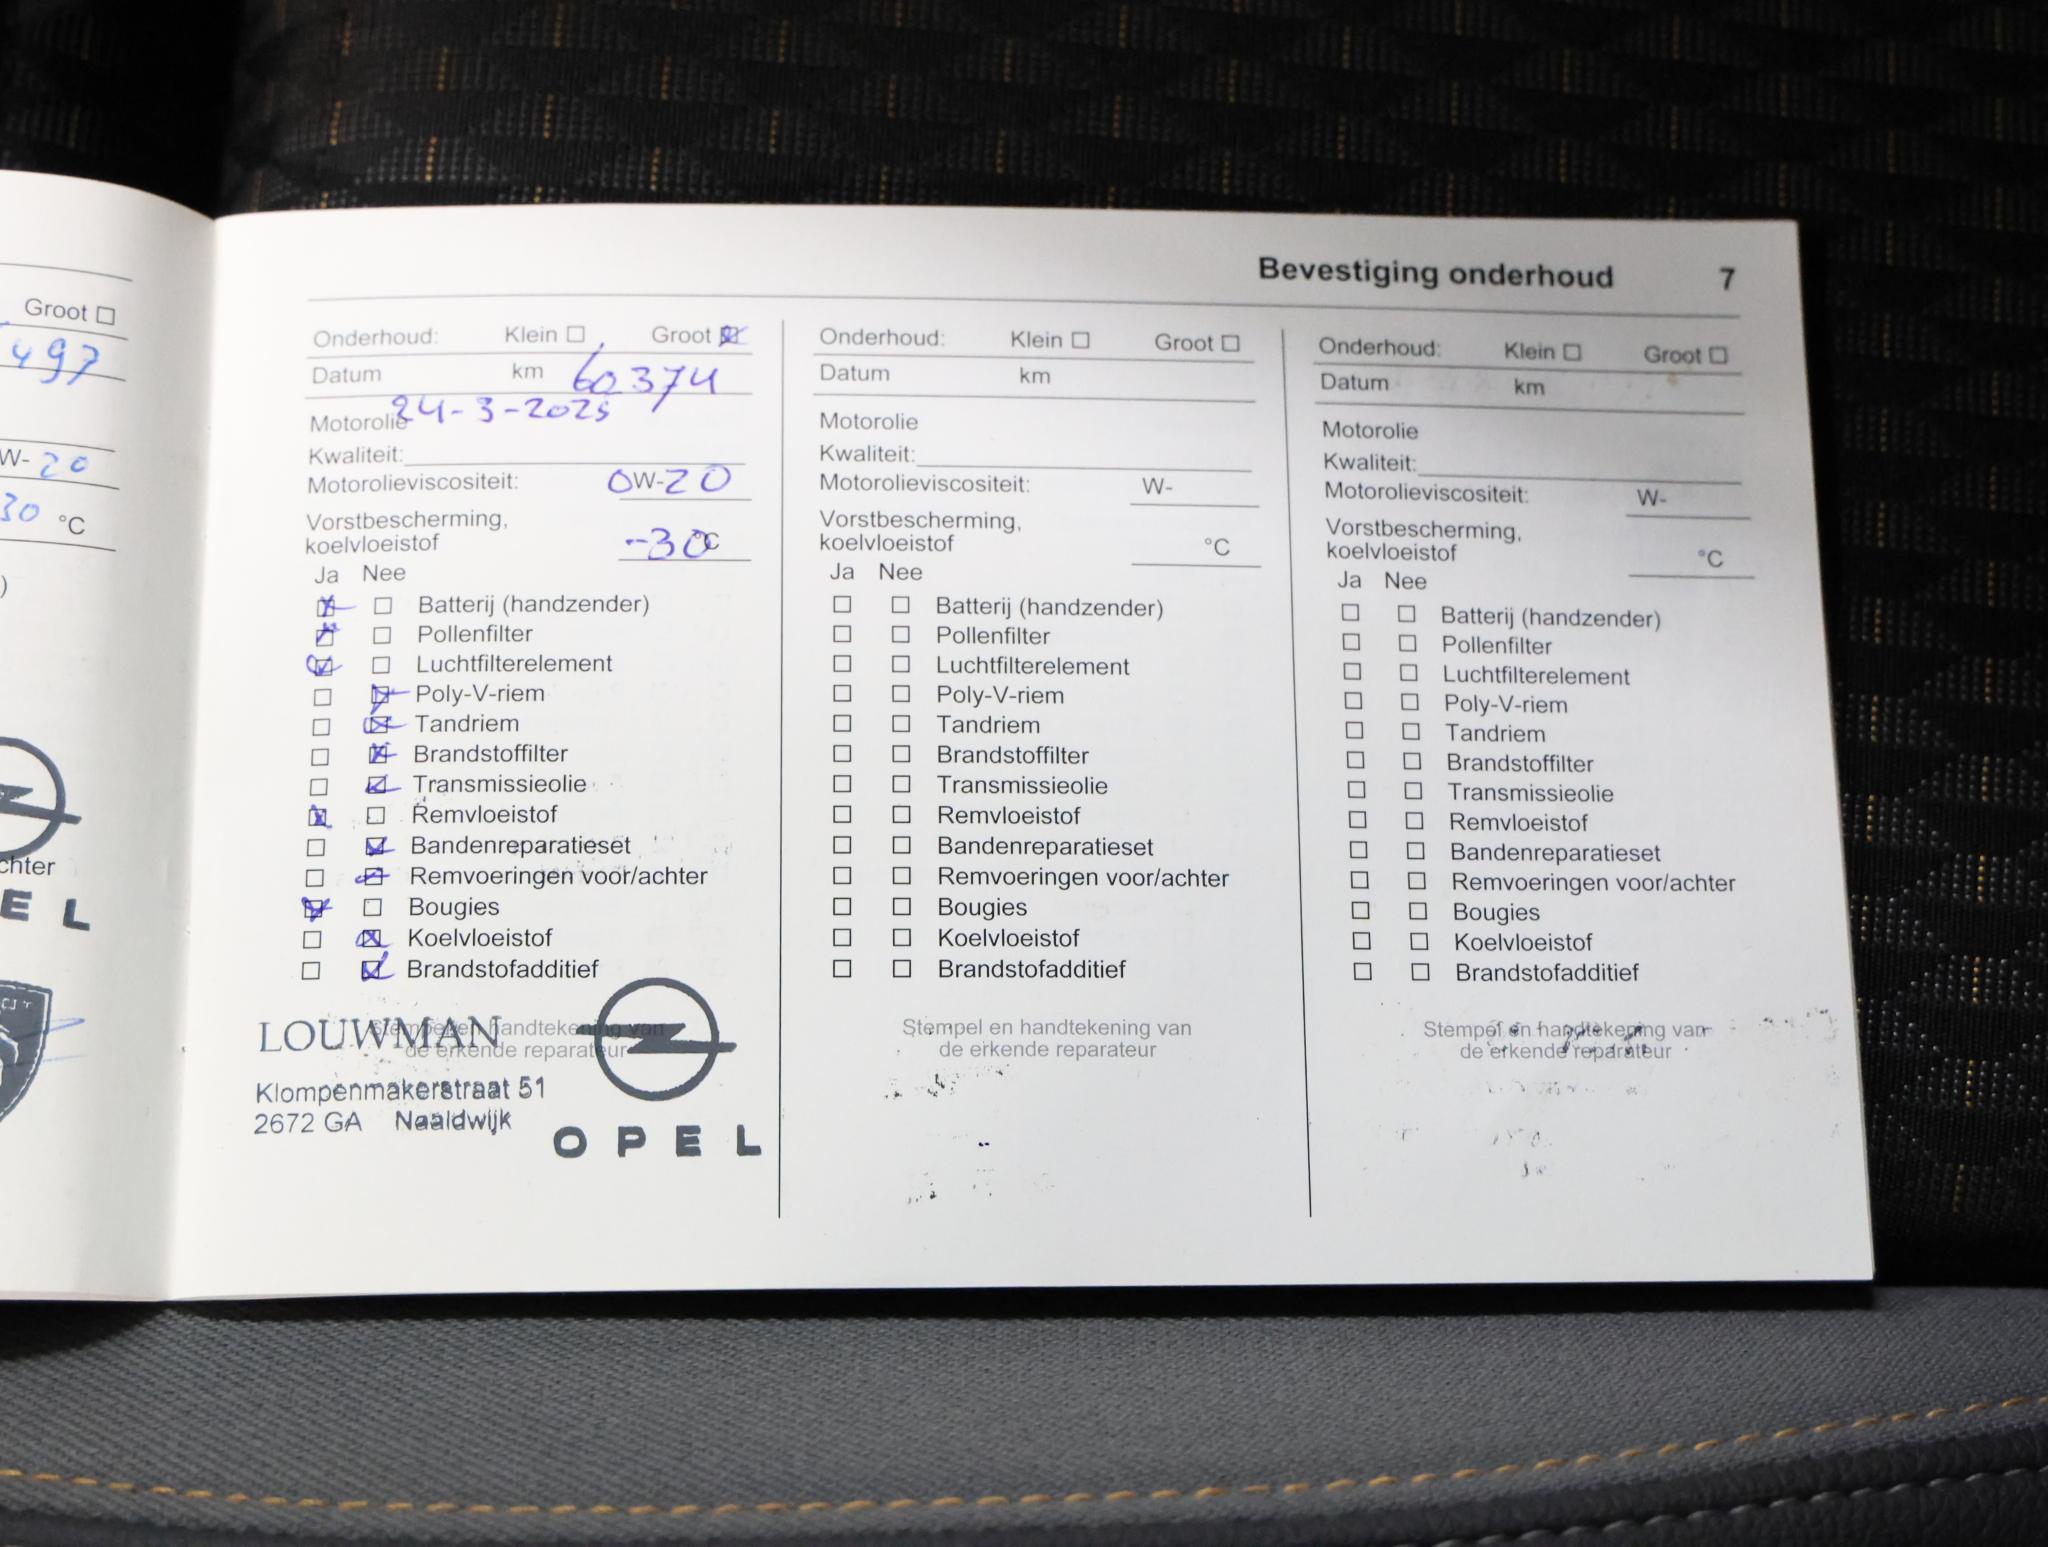 Groot
497
W- 20
30 °C
)
chter
EL
Bevestiging onderhoud 7
Onderhoud: Klein Groot
Datum km 60374
24-3-2025
Motorolie
Kwaliteit:
Motorolieviscositeit: 0W-20
Vorstbescherming,
koelvloeistof -30°C
Ja Nee
Batterij (handzender)
Pollenfilter
Luchtfilterelement
Poly-V-riem
Tandriem
Brandstoffilter
Transmissieolie
Remvloeistof
Bandenreparatieset
Remvoeringen voor/achter
Bougies
Koelvloeistof
Brandstofadditief
Stempel en handtekening van
de erkende reparateur
LOUWMAN
Klompenmakerstraat 51
2672 GA Naaldwijk
OPEL
Onderhoud: Klein Groot
Datum km
Motorolie
Kwaliteit:
Motorolieviscositeit: W-
Vorstbescherming,
koelvloeistof °C
Ja Nee
Batterij (handzender)
Pollenfilter
Luchtfilterelement
Poly-V-riem
Tandriem
Brandstoffilter
Transmissieolie
Remvloeistof
Bandenreparatieset
Remvoeringen voor/achter
Bougies
Koelvloeistof
Brandstofadditief
Stempel en handtekening van
de erkende reparateur
Onderhoud: Klein Groot
Datum km
Motorolie
Kwaliteit:
Motorolieviscositeit: W-
Vorstbescherming,
koelvloeistof °C
Ja Nee
Batterij (handzender)
Pollenfilter
Luchtfilterelement
Poly-V-riem
Tandriem
Brandstoffilter
Transmissieolie
Remvloeistof
Bandenreparatieset
Remvoeringen voor/achter
Bougies
Koelvloeistof
Brandstofadditief
Stempel en handtekening van
de erkende reparateur